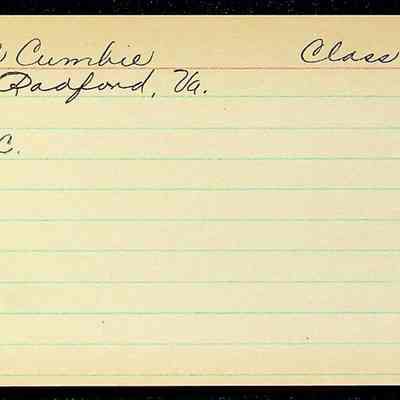 Cumbie Class
Radford, Va.
C.